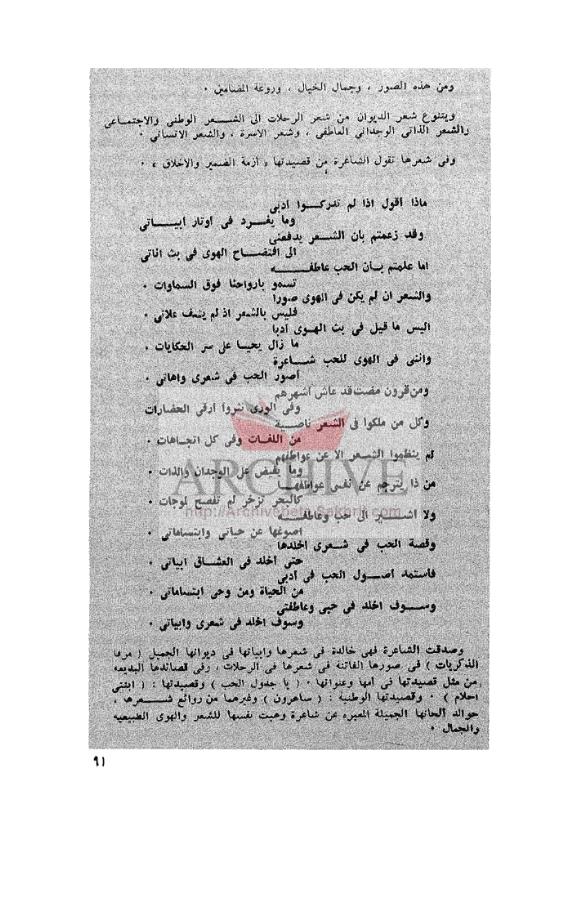 ومن هذه الصور ، وجمال الخيال ، وروعة المضامين .
ويتنوع شعر الديوان من شعر الرحلات الى الشعر الوطنى والاجتماعى
والشعر الذاتى الوجدانى العاطفى ، وشعر الاسرة ، والشعر الانسانى .
وفى شعرها تقول الشاعرة من قصيدتها « أزمة الضمير والاخلاق » .
ماذا أقول اذا لم تدركوا أدبى
وما يغرد فى أوتار أبياتى
وقد زعمتم بأن الشعر يدفعنى
الى افتضاح الهوى فى بث اناتى
اما علمتم بأن الحب عاطفة
تسمو بارواحنا فوق السماوات .
والشعر ان لم يكن فى الهوى صورا
فليس بالشعر اذ لم يشف علاتى .
اليس ما قيل فى بث الهوى أدبا
ما زال يحيا على سر الحكايات .
واننى فى الهوى للحب شاعرة
أصور الحب فى شعرى واهاتى .
ومن قرون مضت قد عاش أشهرهم
وفى الورى نثروا أرقى الحضارات
وكل من ملكوا فى الشعر ناصية
من اللغات وفى كل اتجاهات .
لم ينظموا الشعر الا عن عواطفهم
وما يفيض على الوجدان والذات .
من ذا يترجم عن نفسى عواطفها
كالبحر تزخر لم تفصح لموجات .
ولا أشير الى حب وعاطفة
أصوغها عن حياتى وابتساماتى .
وقصة الحب فى شعرى أخلدها
حتى أخلد فى العشاق أبياتى .
فأستمد أصول الحب فى أدبى
من الحياة ومن وحى ابتساماتى .
وسوف اخلد فى حبى وعاطفتى
وسوف اخلد فى شعرى وابياتى .
وصدقت الشاعرة فهى خالدة فى شعرها وابياتها فى ديوانها الجميل (
الذكريات ) فى صورها الفاتنة فى شعرها فى الرحلات ، وفى قصائدها البديعة
من مثل قصيدتها فى أمها وعنوانها . ( يا جدول الحب ) وقصيدتها : ( ابنتى
احلام ) . وقصيدتها الوطنية : ( ساهرون ) وغيرهما من روائع شعرها ،
الحانها الجميلة المعبرة عن شاعرة وهبت نفسها للشعر والهوى الطبيعية
والجمال .
ARCHIVE
http://Archivebeta.Sakhrit.com
٩١